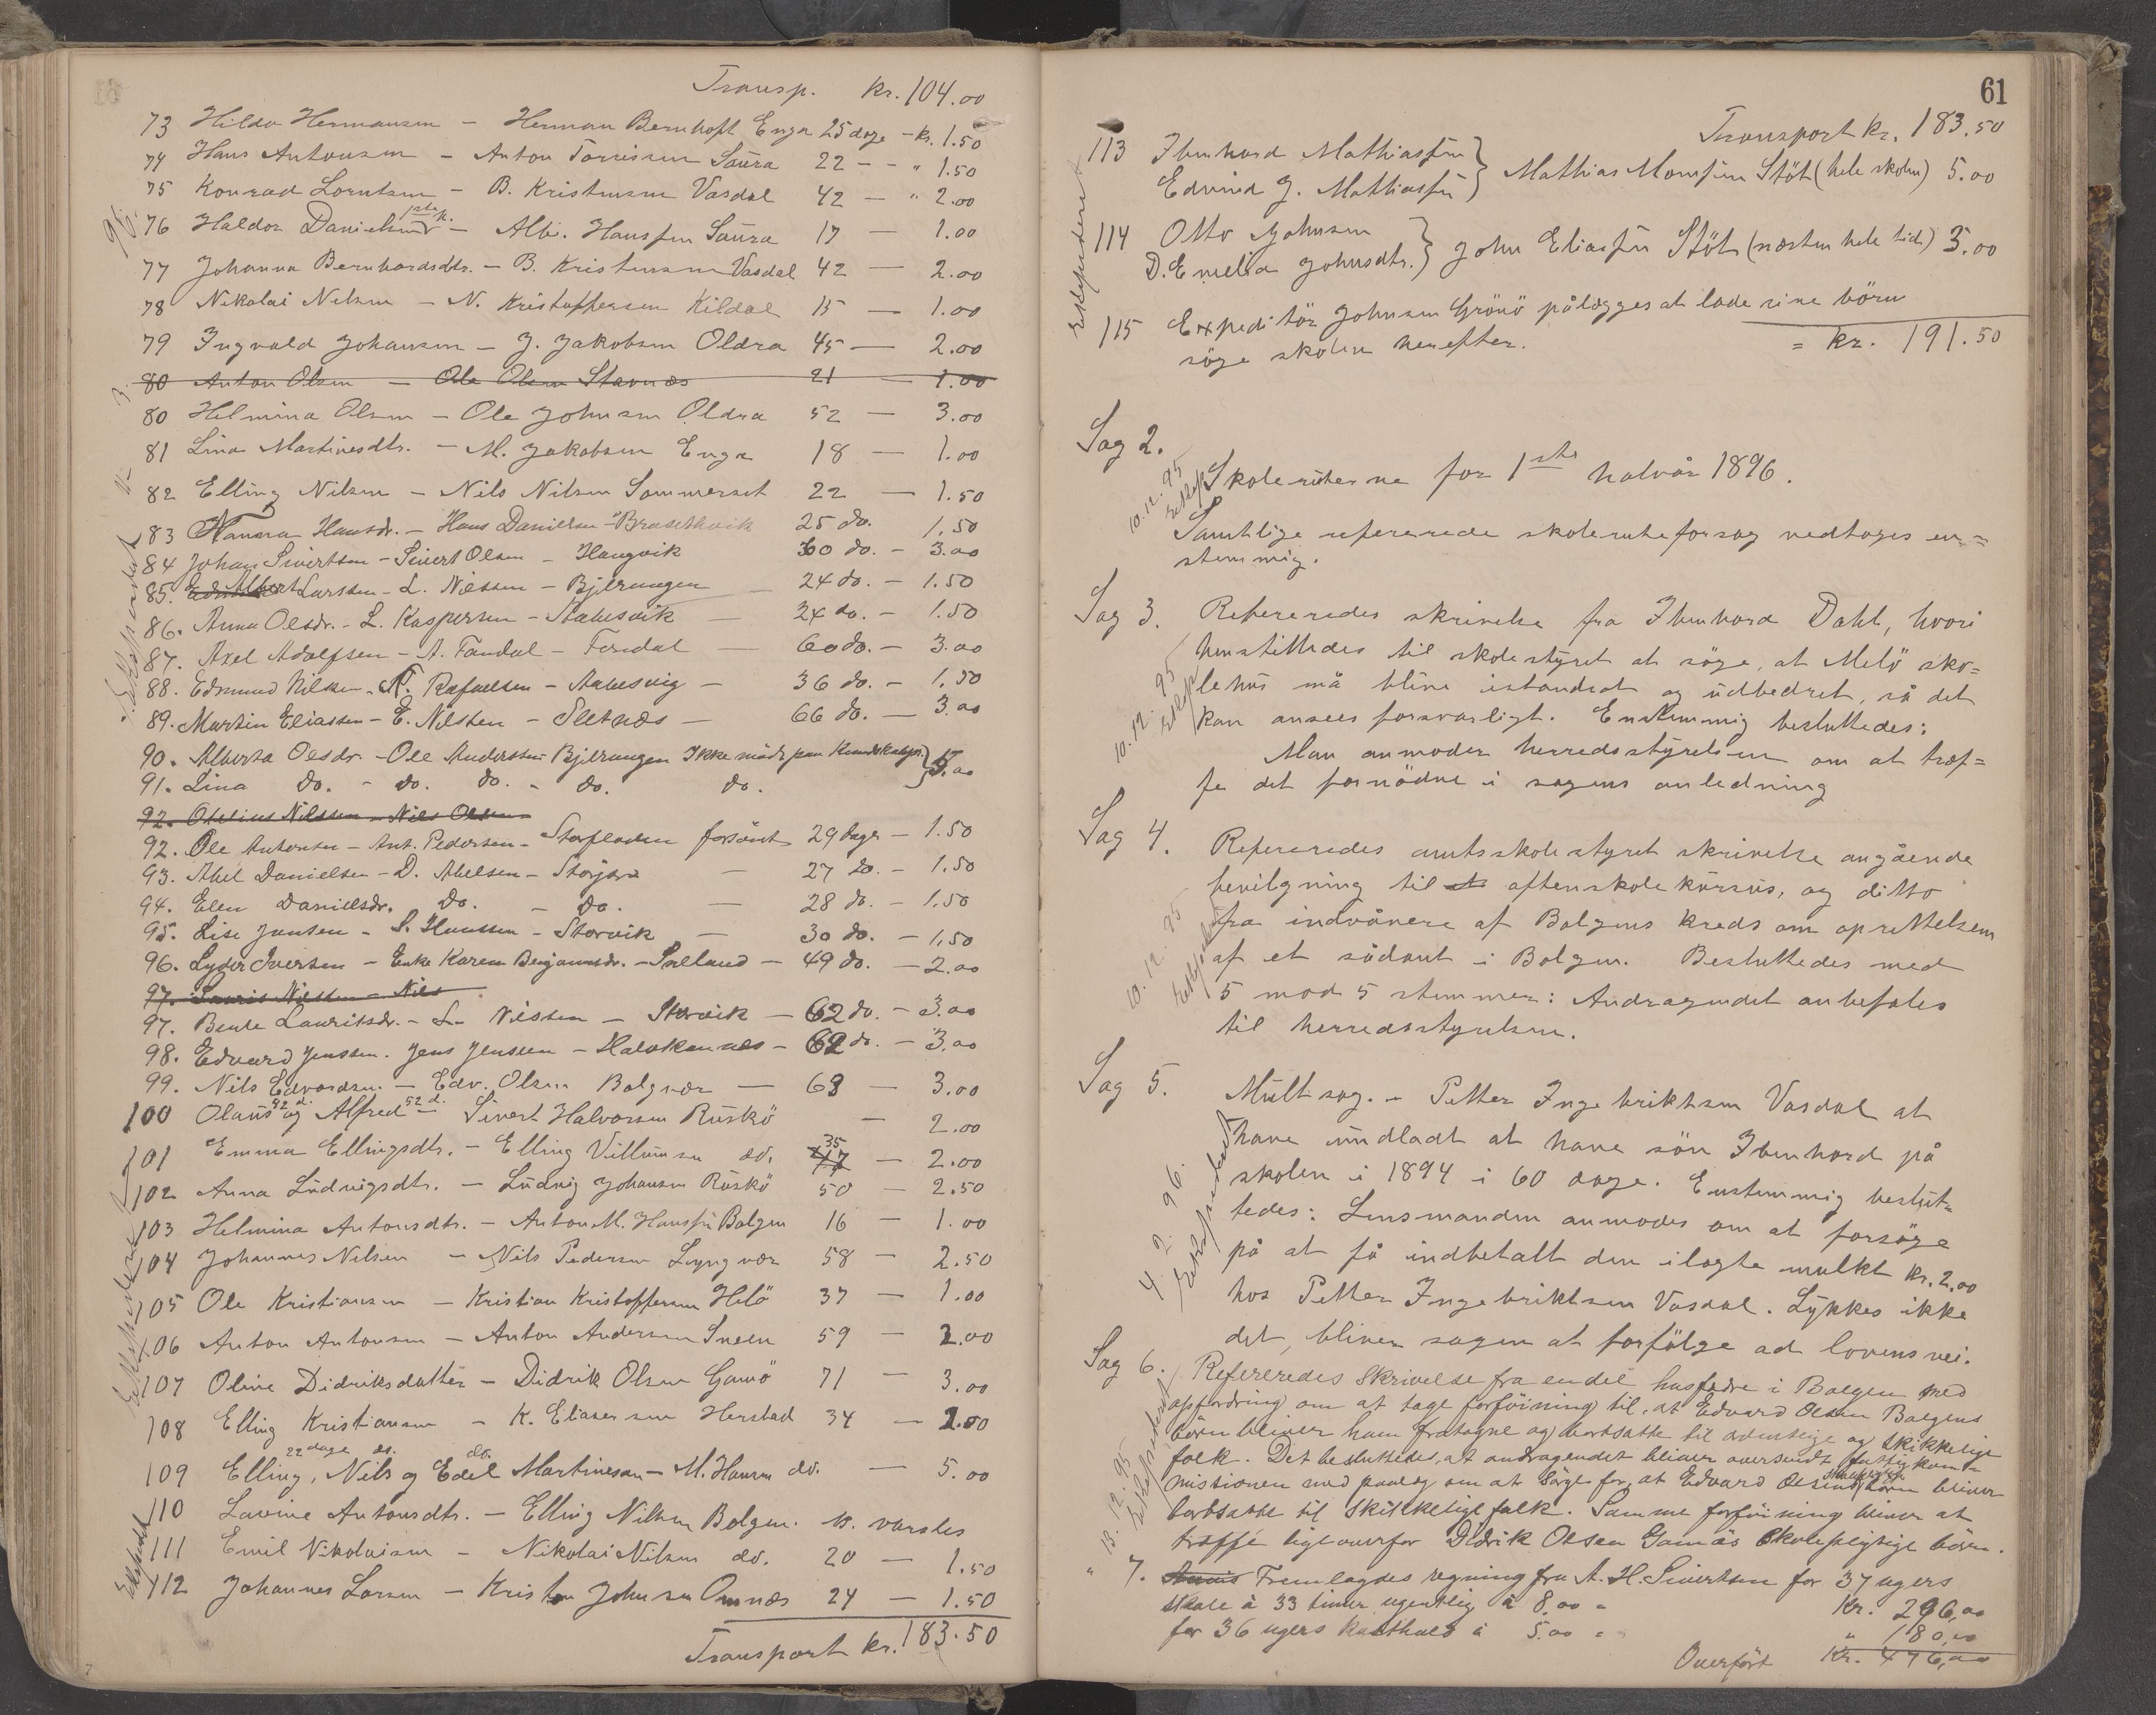 Transp. kr. 104.00
73 Hilda Hermansen - Herman Bernhoft Enga 25 dage - kr. 1.50
74 Hans Antonsen - Anton Torrissen Saura 22 - - " 1.50
75 Konrad Lorntsen - B. Kristensen Vasdal 42 - " 2.00
76 Haldor Danielsen - Alb. Hanssen Saura 17 - 1.00
77 Johanna Bernhardsdtr. - B. Kristensen Vasdal 42 - 2.00
78 Nikolai Nilsen - N. Kristoffersen Kildal 15 - 1.00
79 Ingvald Johansen - J. Jakobsen Oldra 45 - 2.00
80 Anton Olsen - Ole Olsen Stavnæs 21 - 1.00
80 Helmina Olsen - Ole Johnsen Oldra 52 - 3.00
81 Lina Martinesdtr. - M. Jakobsen Enga 18 - 1.00
82 Elling Nilsen - Nils Nilsen Sommerset 22 - 1.50
83 Hanna Hansdr. - Hans Danielsen - Brasethvik 25 do. 1.50
84 Johan Sivertsen - Sivert Olsen - Haugvik 60 do. - 3.00
85. Albert Larssen - L. Nilssen - Bjerangen 24 do. - 1.50
86. Anna Olsdr. - L. Kaspersen - Aalesvik - 24 do. - 1.50
87. Axel Adolfsen - A. Fondal - Fondal - 60 do. - 3.00
88. Edmund Nilsen - N. Rafaelsen - Aalesvig - 36 do. - 1.50
89. Martin Eliassen - E. Nilssen - Sletnæs - 66 do. - 3.00
90. Alberta Olsdr. - Ole Anderssen Bjerangen Ikke mødt paa Kundskabspr. } 5.00
91. Lina do. - do. do. - do. do.
92. Otelius Nilssen - Nils Olsen
92. Ole Antonsen - Ant. Pedersen - Storfladen forsömt 29 dage - 1.50
93. Abel Danielsen - D. Abelsen - Storjord - 27 do. - 1.50
94. Elen Danielsdr. do. - do. - 28 do. - 1.50
95. Lise Jansen - S. Hanssen - Storvik - 30 do. - 1.50
96. Lyder Iversen - Enke Karen Benjaminsdr. - Sæland - 49 do. - 2.00
97. Laurits Nilssen - Nils
97. Berte Lauritsdr. - L. Nilssen - Storvik - 62 do. - 3.00
98. Edvard Jenssen. Jens Jenssen - HalsKannæs - 62 do. - 3.00
99. Nils Edvardsen - Edv. Olsen Bolgvær - 63 - 3.00
52 d. 52 d.
100 Olaus og Alfred - Sivert Halvorsen Ruskö - 2.00
101 Emma Ellingsdtr. - Elling Villumsen do. 35 - 2.00
102 Anna Ludvigsdtr. - Ludvig Johansen Ruskö 50 - 2.50
103 Helmina Antonsdtr. - Anton M. Hanssen Bolgen 16 - 1.00
104 Johannes Nilsen - Nils Pedersen Lyngvær 58 - 2.50
105 Ole Kristiansen - Kristian Kristoffersen Helö 37 - 1.00
106 Anton Antonsen - Anton Andersen Sneen 59 - 2.00
107 Oline Didriksdatter - Didrik Olsen Gamö 71 - 3.00
108 Elling Kristiansen - K. Eliasersen Herstad 34 - 2.00
22 dage do. do.
109 Elling, Nils og Edel Martinesen - M. Hansen do. - 5.00
110 Lavine Antonsdtr. - Elling Nilsen Bolgen. kr. varsles
111 Emil Nikolaisen - Nikolai Nilsen do. 20 - 1.50
112 Johannes Larsen - Kristen Johnsen Omnæs 24 - 1.50
Transport kr. 183.50
61
Transport kr. 183.50
113 Ibenhard Mathiassen
Edvind J. Mathiassen } Mathias Monssen Stöt (hele skolen) 5.00
114 Otto Johnsen
D. Emelia Johnsdtr. } John Eliassen Stöt (næsten hele tid) 3.00
115 Expeditör Johnsen Grönö pålægges at lade sine börn
söge skolen herefter. = kr. 191.50
Sag 2.
10.12.95
Skoleruterne for 1ste halvår 1896.
Samtlige refererede skoleruteforslag vedtoges en=
stemmig.
Sag 3. Refereredes skrivelse fra Ibenhard Dahl, hvori
henstilledes til skolestyret at söge, at Melö sko=
lehus må blive istandsat og udbedret, så det
kan ansees forsvarligt. Enstemmig besluttedes:
10.12.95
Man anmoder herredsstyrelsen om at træf=
fe det fornödne i sagens anledning
Sag 4. Refereredes amtsskolestyret skrivelse angående
bevilgning til et aftenskolekursus, og ditto
fra indvånere af Bolgens kreds om oprettelsen
af et sådant i Bolgen. Besluttedes med
10.12.95
5 mod 5 stemmer: Andragendet anbefales
til herredsstyrelsen.
Sag 5. Mulktsag. - Petter Ingebriktsen Vasdal at
have undladt at have sön Ibenhard på
skolen i 1894 i 60 dage. Enstemmig beslut=
tedes: Lensmanden anmodes om at forsöge
på at få indbetalt den ilagte mulkt kr. 2,00
4. 2. 96. Ekspederet
hos Petter Ingebriktsen Vasdal. Lykkes ikke
det, bliver sagen at forfölge ad lovens vei.
Sag 6. Refereredes Skrivelse fra endel husfædre i Bolgen med
opfordring om at tage forföining til, at Edvard Olsen Bolgens
börn bliver ham fratagne og bortsatte til ordentlige og skikkelige
folk. Det besluttedes, at andragendet bliver oversendt fattigkom=
missionen med paalæg om at sörge for, at Edvard Olsens börn bliver
bortsatte til skikkelige folk. Samme forföining bliver at
træffe ligeoverfor Didrik Olsen Gamös skolepligtige börn.
" 7. Fremlagdes regning fra A. H. Sivertsen for 37 ugers
skole à 33 timer ugentlig à 8,00 = Kr. 296,00
for 36 ugers kosthold à 5.00 = " 180,00
Overfört Kr. 476,00